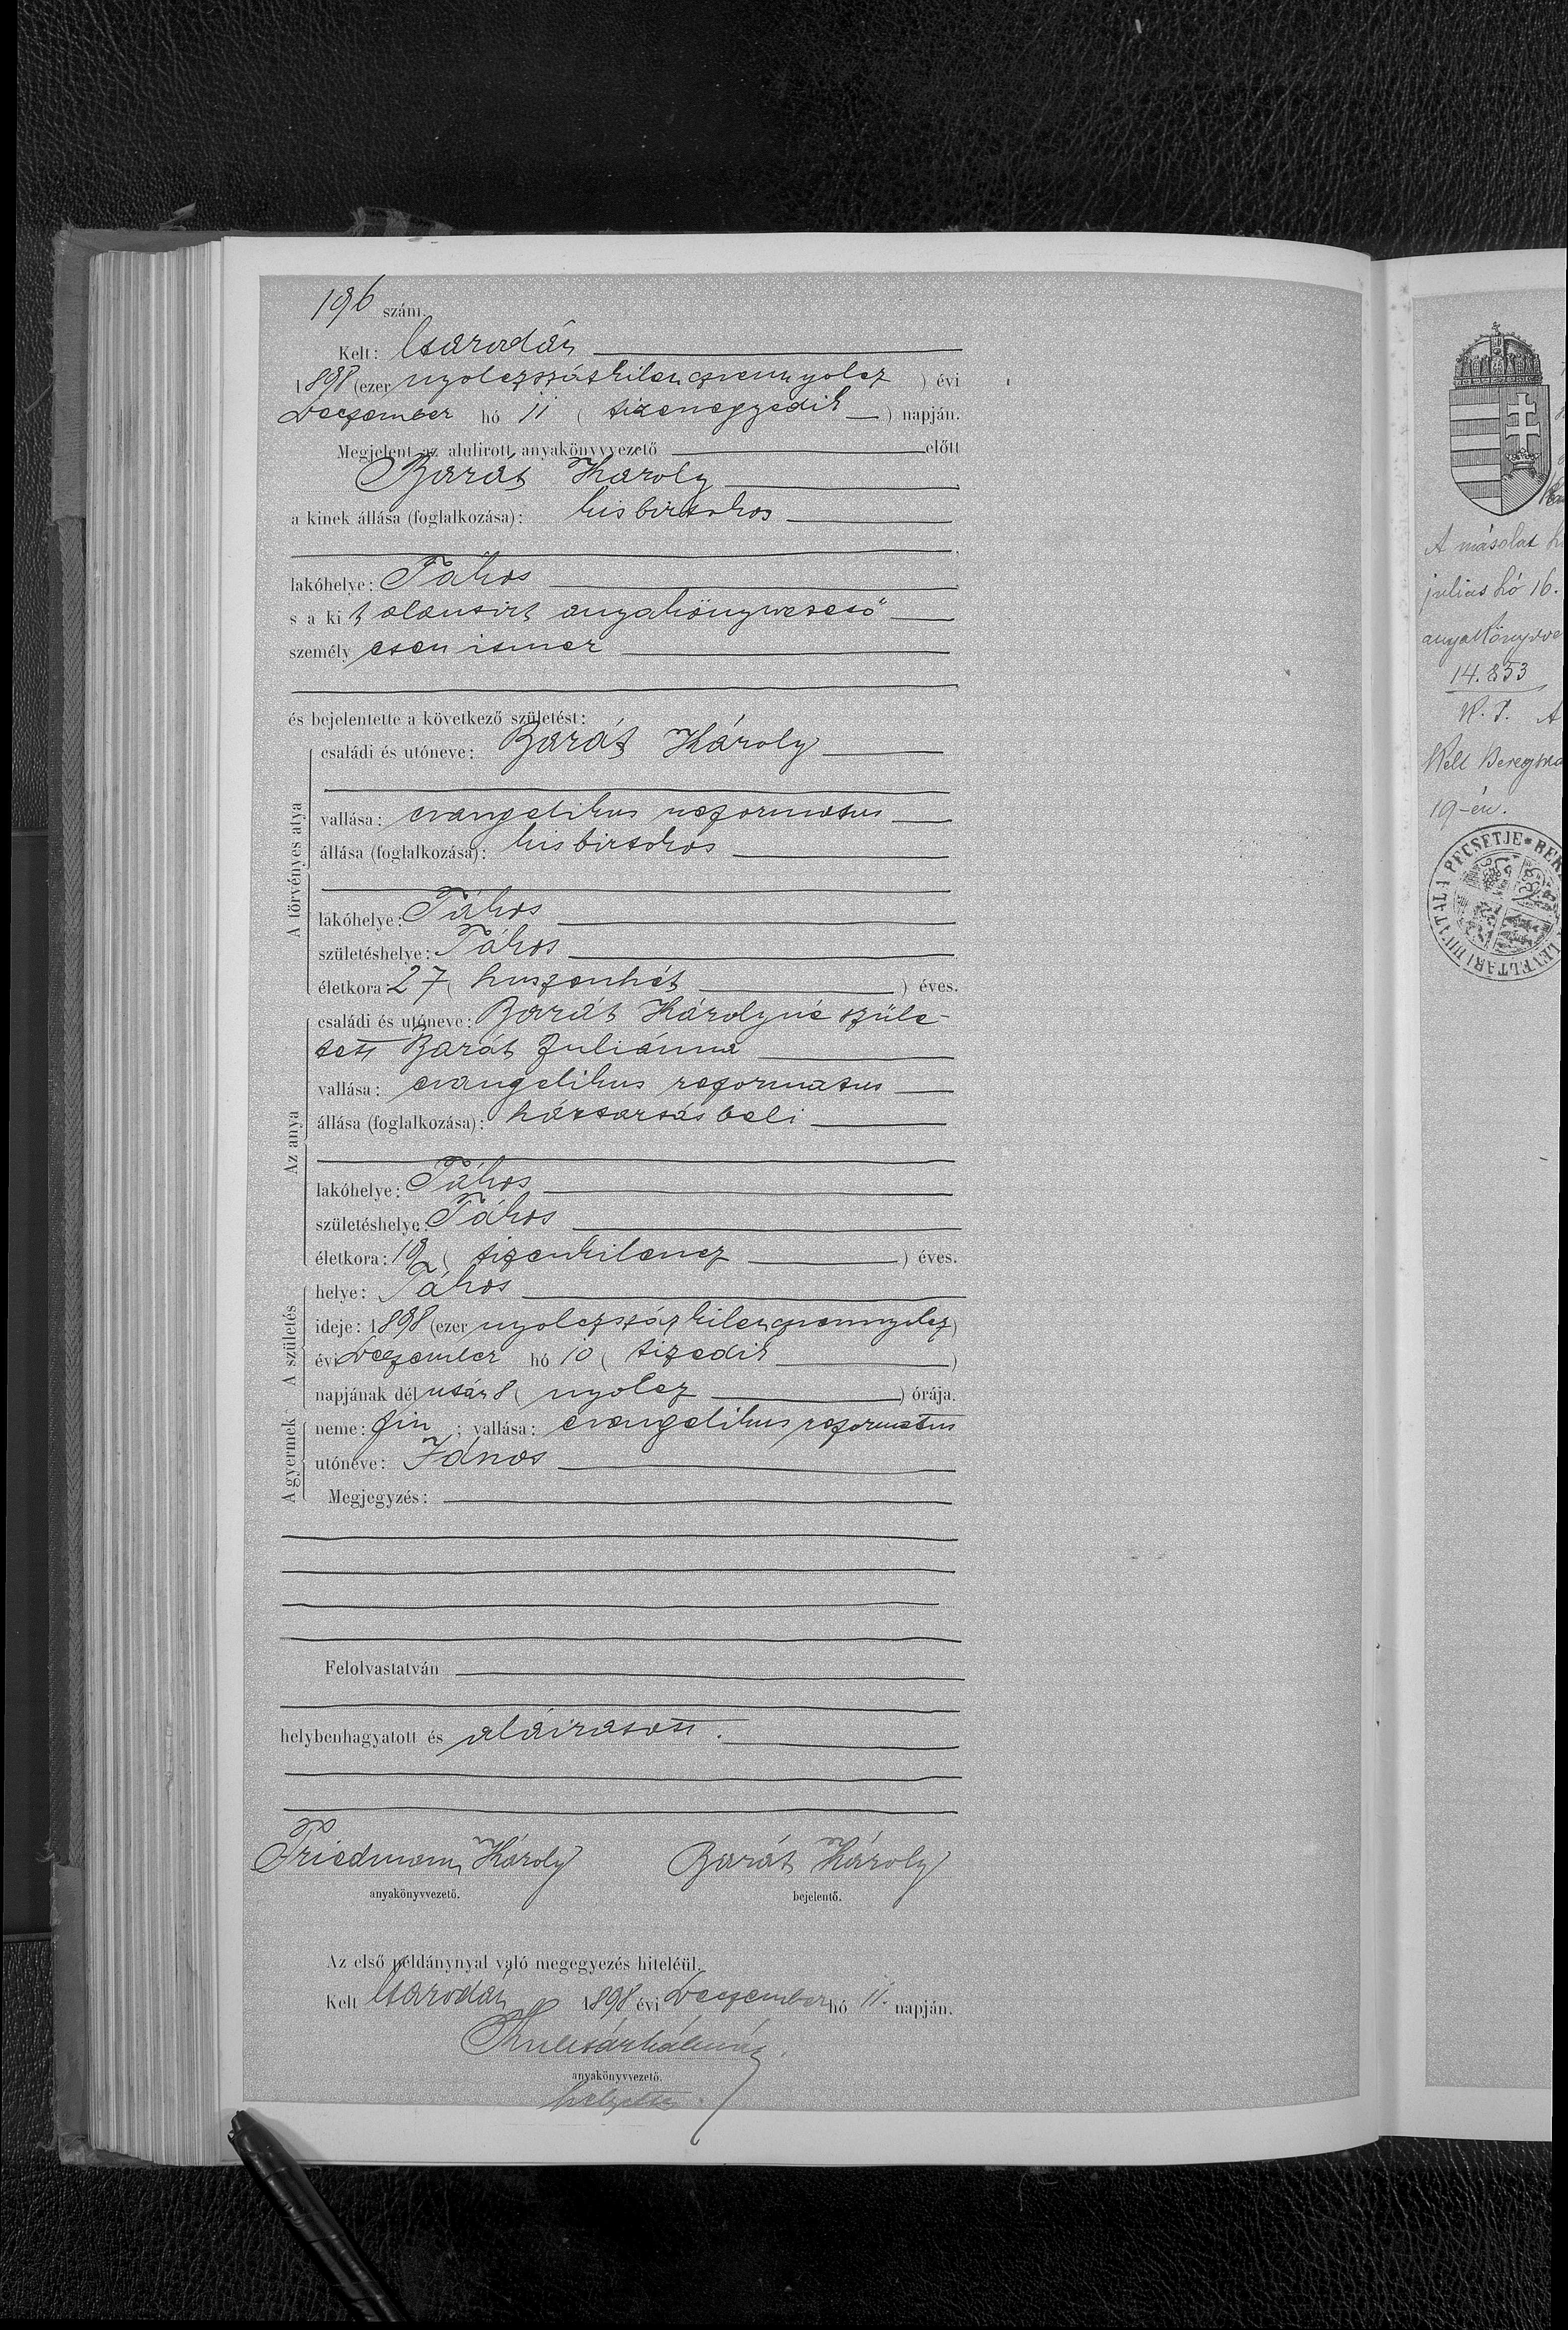 196 szám.
Kelt: Csarodán
1898 (ezer nyolczszázkilenczvennyolcz ) évi
Deczember hó 11 ( tizenegyedik ) napján.
Megjelent az alulirott anyakönyvvezető előtt
Barát Károly
a kinek állása (foglalkozása): kisbirtokos
lakóhelye: Tákos
s a kit alantirt anyakönyvvezető
személyesen ismer
és bejelentette a következő születést:
A törvényes atya
családi és utóneve: Barát Károly
vallása: evangelikus reformatus
állása (foglalkozása): kisbirtokos
lakóhelye: Tákos
születéshelye: Tákos
életkora: 27 ( huszonhét ) éves.
Az anya
családi és utóneve: Barát Károlyné szüle-
tett Barát Juliánna
vallása: evangelikus reformatus
állása (foglalkozása): háztartásbeli
lakóhelye: Tákos
születéshelye: Tákos
életkora: 19 ( tizenkilencz ) éves.
A születés
helye: Tákos
ideje: 1898 (ezer nyolczszázkilenczvennyolcz)
évi Deczember hó 10 ( tizedik )
napjának dél után 8 ( nyolcz ) órája.
A gyermek
neme: fiu ; vallása: evangelikus reformatus
utóneve: János
Megjegyzés:
Felolvastatván
helybenhagyatott és aláiratott.
Friedmann Károly Barát Károly
anyakönyvvezető. bejelentő.
Az első példánynyal való megegyezés hiteléül.
Kelt Csarodán 1898 évi Deczember hó 11. napján.
Kulcsár Kálmán
anyakönyvvezető.
helyettes.
A másolat
julius hó 16.
anyakönyvve
14.853
Kelt Beregsza
19-én.
PECSETJE * BER
LEVÉLTÁRI HIVATALA